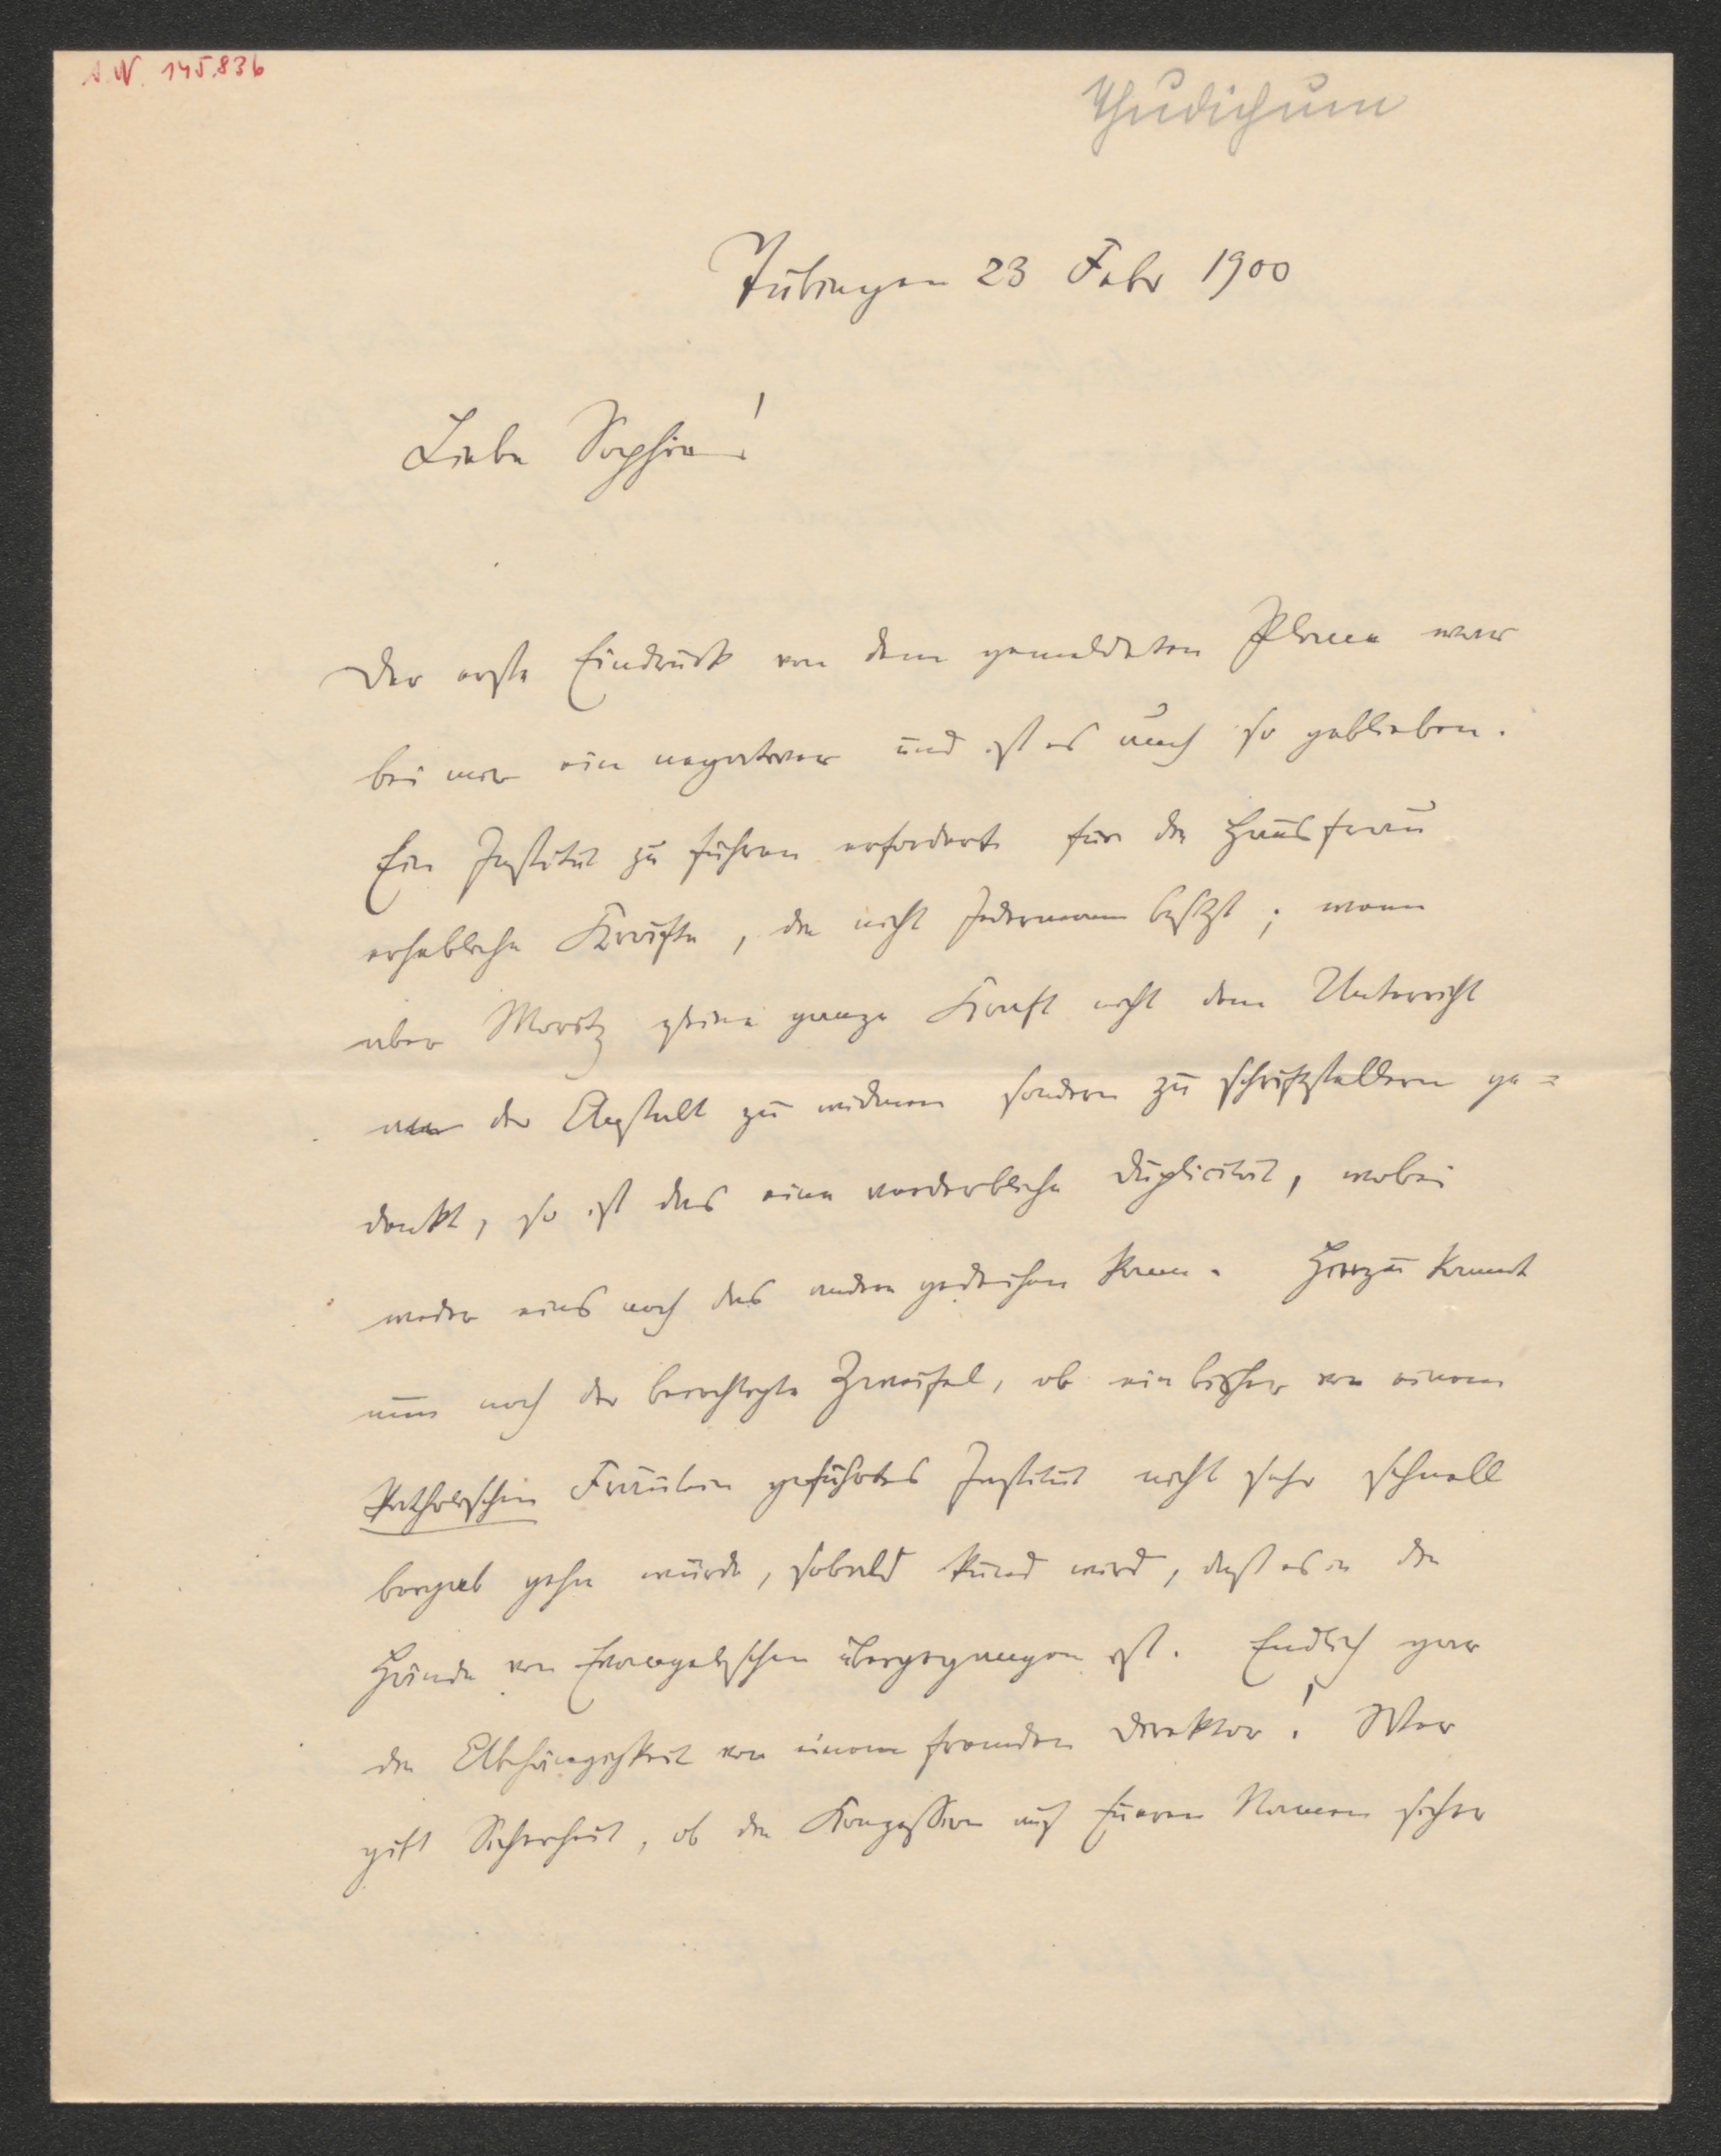 A. N. 145.836
Thudichum
Tübingen 23 Febr 1900
Liebe Sophie!
Der erste Eindruck von dem gemeldeten Plane war
bei mir ein negativer und ist es auch so geblieben.
Ein Institut zu führen erfordert für die Hausfrau
erhebliche Kräfte, die nicht Jedermann besitzt; wenn
aber Moritz seine ganze Kraft nicht dem Unterricht
der Anstalt zu widmen sondern zu schriftstellern ge=
denkt, so ist das eine verderbliche Duplicität, wobei
weder eins noch das andere gedeihen kann. Hierzu kommt
nun noch der berechtigte Zweifel, ob ein bisher von einem
katholischen Fräulein geführtes Institut nicht sehr schnell
bergab gehn würde, sobald kund wird, daß es in die
Hände von Evangelischen übergegangen ist. Endlich gar
die Abhängigkeit von einem fremden Direktor! Wer
gibt Sicherheit, ob die Konzession auf Eueren Namen sicher